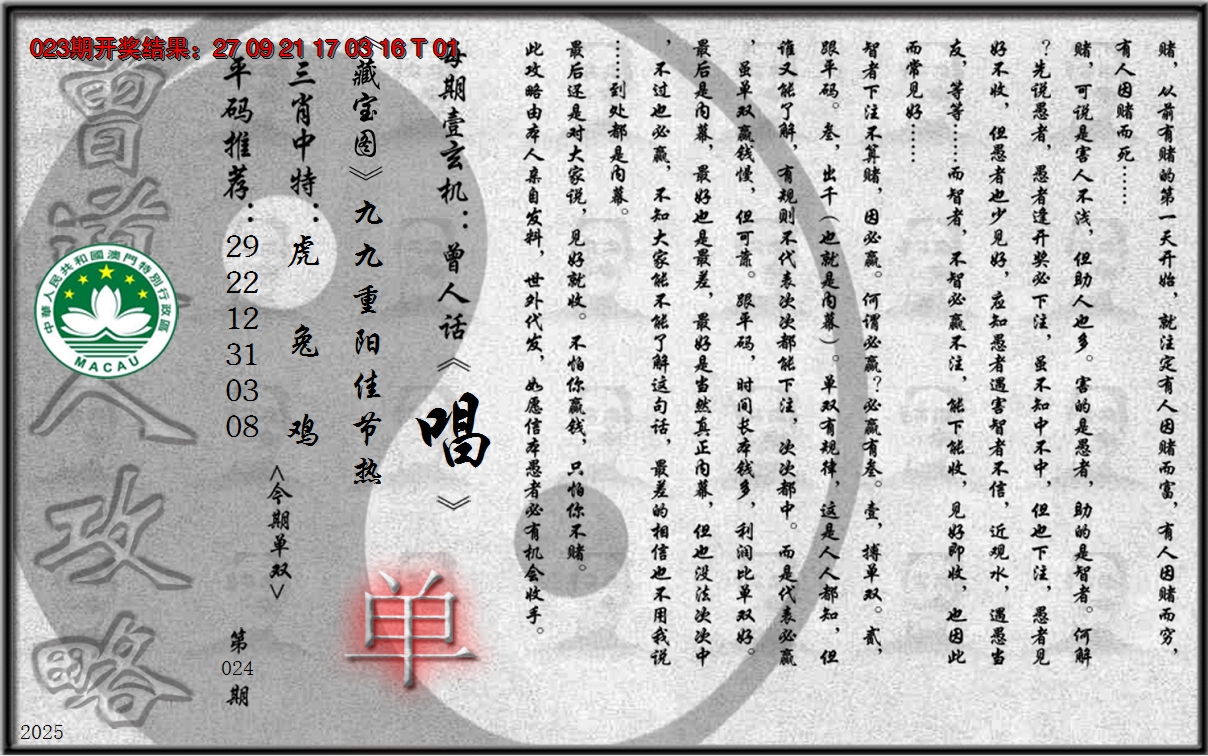 023期开奖结果：27 09 21 17 03 16 T 01
赌，从前有赌的第一天开始，就注定有人因赌而富，有人因赌而穷，
有人因赌而死……
赌，可说是害人不浅，但助人也多。害的是愚者，助的是智者。何解
？先说愚者，愚者逢开奖必下注，虽不知中不中，但也下注，愚者见
好不收，但愚者也少见好，应知愚者遇害智者不信，近观水，遇愚当
友，等等……而智者，不智必赢不注，能下能收，见好即收，也因此
而常见好……
智者下注不算赌，因必赢。何谓必赢？必赢有叁。壹，搏单双。贰，
跟平码。叁，出千（也就是内幕）。单双有规律，这是人人都知，但
谁又能了解，有规则不代表次次都能下注，次次都中。而是代表必赢
，虽单双赢钱慢，但可靠。跟平码，时间长本钱多，利润比单双好。
最后是内幕，最好也是最差，最好是当然真正内幕，但也没法次次中
，不过也必赢，不知大家能不能了解这句话，最差的相信也不用我说
……到处都是内幕。
最后还是对大家说，见好就收。不怕你赢钱，只怕你不赌。
此攻略由本人亲自发料，世外代发，如愿信本愚者必有机会收手。
每期壹玄机：曾人话《唱》
《藏宝图》九九重阳佳节热
单
三肖中特：虎 兔 鸡
<今期单双>
平码推荐：29 22 12 31 03 08
第024期
曾道人攻略
中華人民共和國澳門特別行政區
MACAU
2025